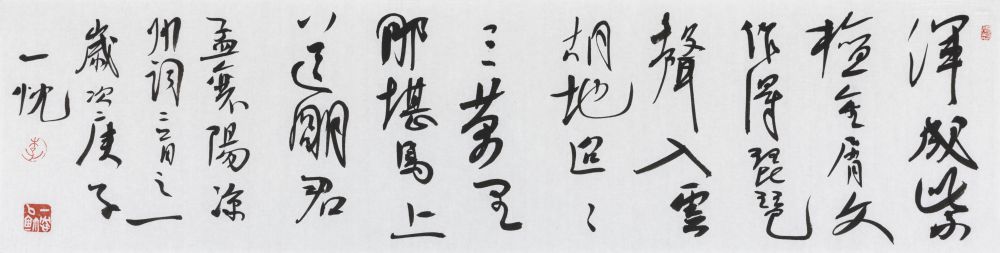 渾成紫
檀金屑文
作得琵琶
聲入雲
胡地迢〻
三萬里
那堪馬上
送朙君
孟襄陽涼
州詞二首之一
歲次庚子
一忱